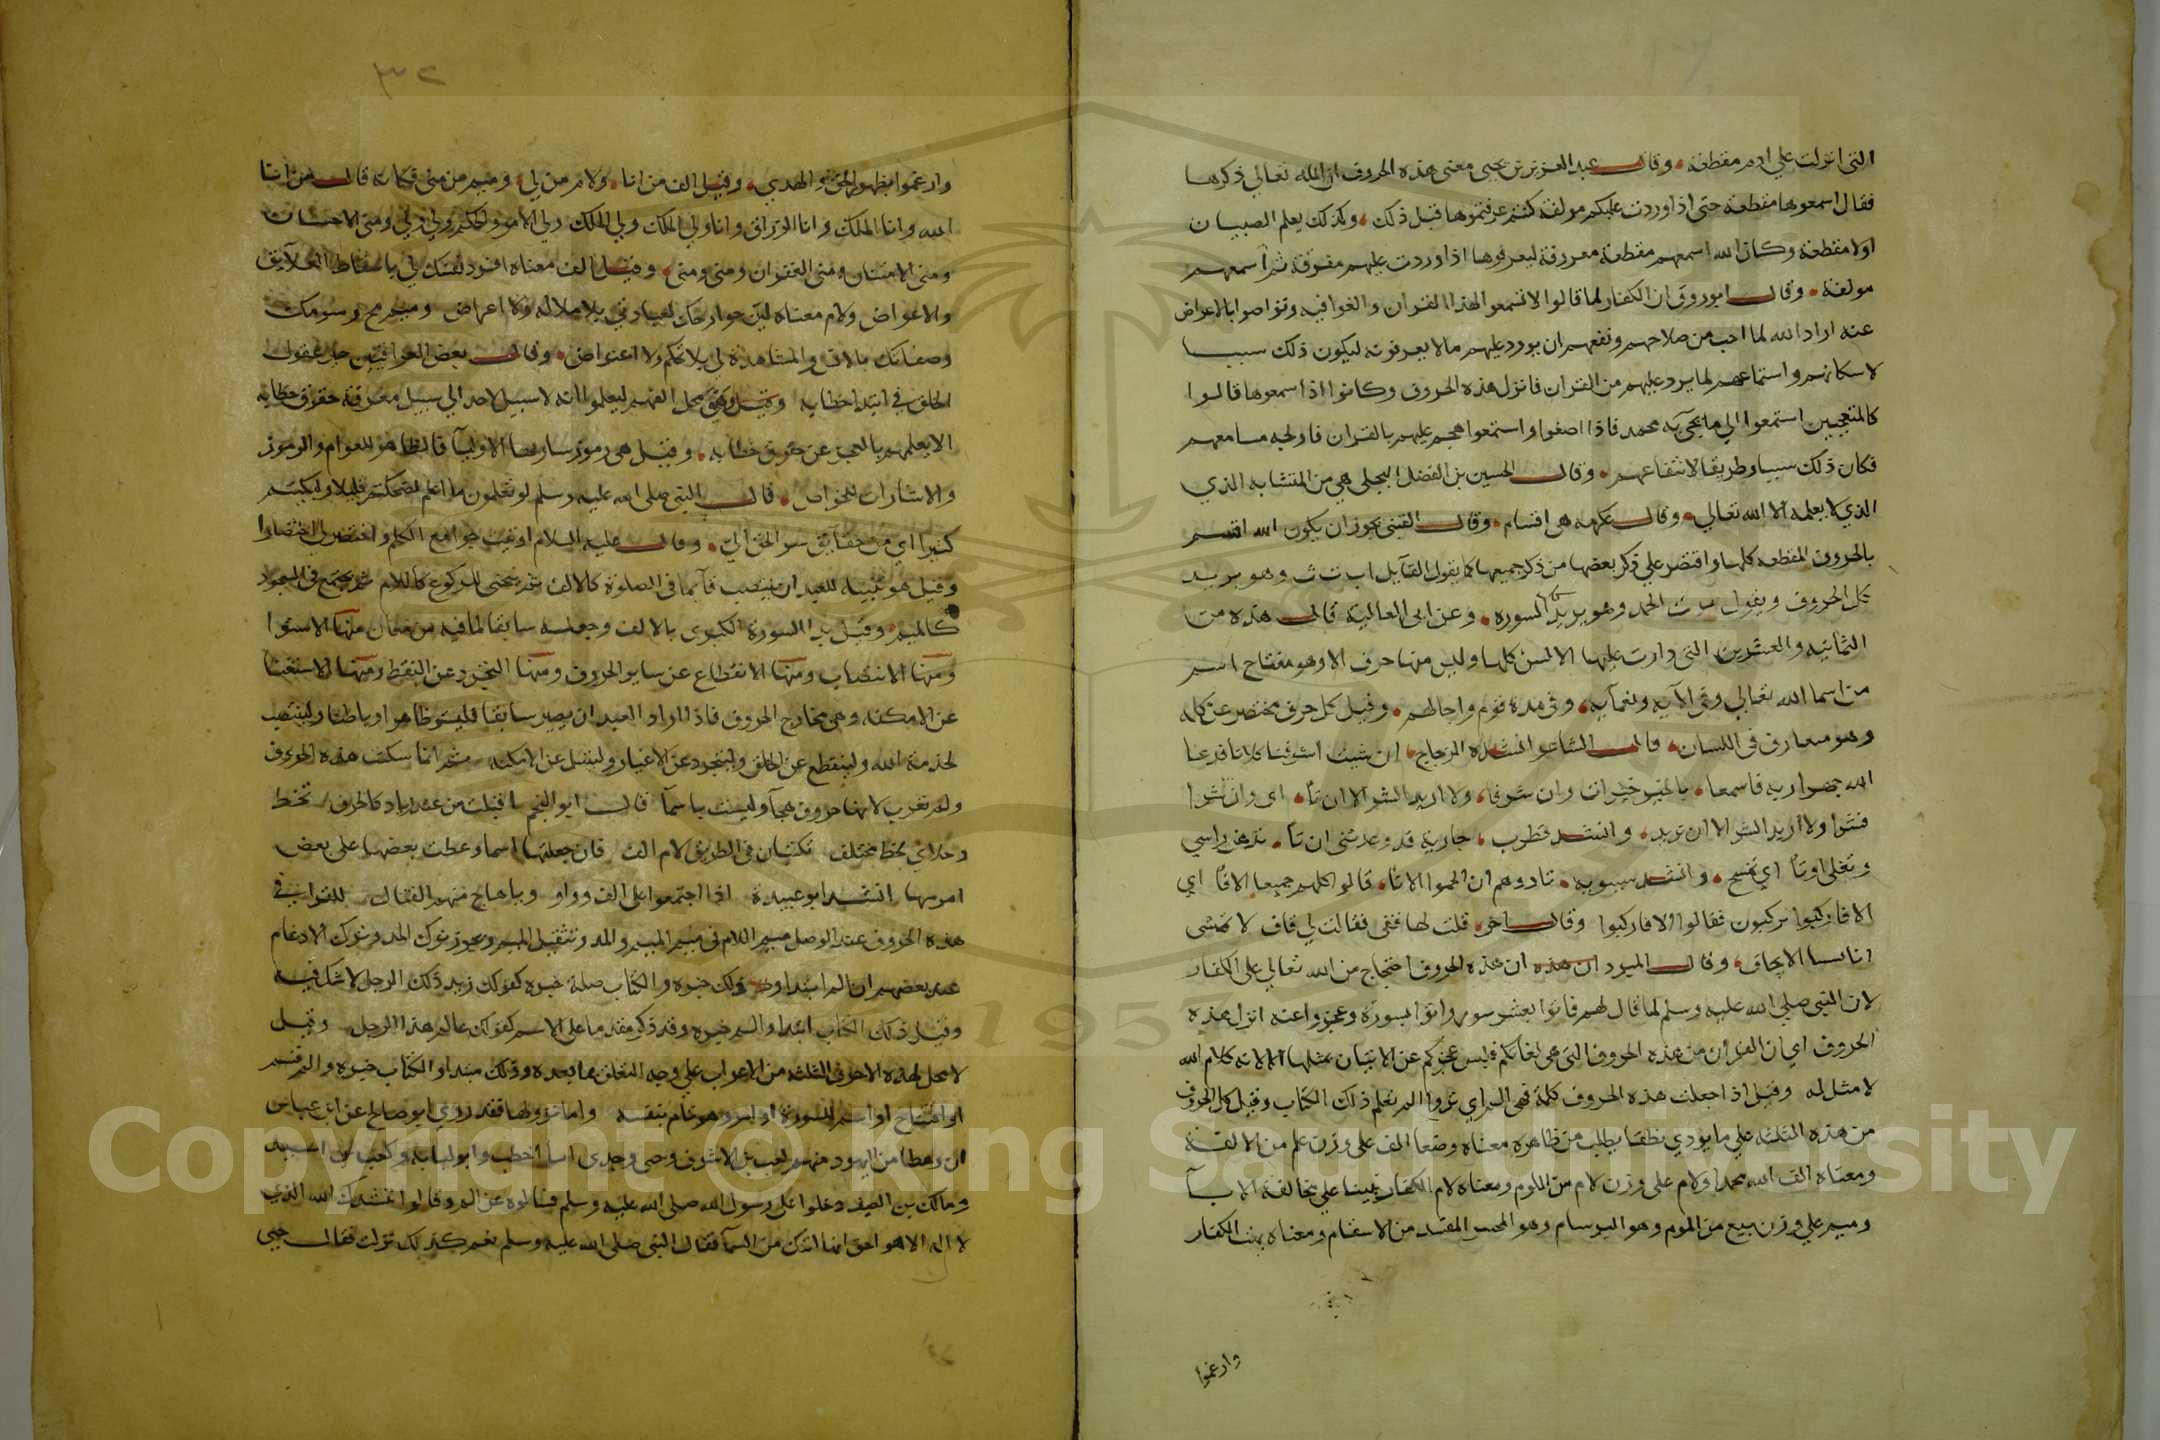 التي انزلت علي ادم مقطعة وقال عبد العزيز بن يحيى معنى هذه الحروف ان الله تعالي ذكرها
فقال اسمعوها مقطعة حتى اذا وردت عليكم مولفة كنتم عرفتموها قبل ذلك وكذلك يعلم الصبيان
اولا مقطعة وكان الله اسمعهم مقطعة معروفة ليعرفوها اذا وردت عليهم مفرقة ثم اسمعهم
مولفة وقال ابو روق ان الكفار لما قالوا لا تسمعوا لهذا القران والغوا فيه وتواصوا بالاعراض
عنه اراد الله لما احب من صلاحهم ونفعهم ان يورد عليهم مالا يعرفونه ليكون ذلك سببا
لاسكاتهم واستماعهم لما يرد عليهم من القران فانزل هذه الحروف وكانوا اذا سمعوها قالوا
كالمتعجبين استمعوا الي ما يجي به محمد فاذا اصغوا واستمعوا هجم عليهم بالقران فاولجه مسامعهم
فكان ذلك سببا وطريقا لانتفاعهم وقال الحسين بن الفضل البجلي هي من المتشابه الذي
الذي لا يعلمه الا الله تعالي وقال عكرمه هي اقسام وقال القتيبي يجوز ان يكون الله اقسم
بالحروف المقطعه كلها واقتصر علي ذكر بعضها من ذكر جميعها كما يقول القايل اب ت ث وهو يريد
كل الحروف ويقول الحمد وهو يريد السوره وعن ابي العالية قال هذه من
الثمانيه والعشرين التي دارت عليها الالسن كلها وليس منها حرف الا وهو مفتاح اسم
من اسما الله تعالي وفي الآيه ونعمآيه وفي مدة قوم واجالهم وقيل كل حرف مختصر عن كلمه
وهو متعارف في اللسان قال الشاعر انشده الزجاج ان شيت اشرفنا كلانا فدعا
الله جهرا ربه فاسمعا بالخير خيرات وان شرفا ولا اريد الشر الا ان تا اي وان شرا
فشرا ولا اريد الشر الا ان تريد وانشد قطرب جارية قد وعدتني ان تا تدهن راسي
وتفلي اوتا اي تمسح وانشد سيبويه نادوهم ان الجموا الا تا قالوا كلهم جميعا الا فا اي
الا فاركبوا تركبون فقالوا الا فاركبوا وقال اخر قلت لها قفي فقالت لي قاف لا تحسبي
انا نسينا الايجاف وقال المبرد ان هذه الحروف احتجاج من الله تعالي علي الكفار
لان النبي صلي الله عليه وسلم لما قال لهم فاتوا بعشر سور واتوا بسورة وعجزوا عنه انزل هذه
الحروف اي ان القران من هذه الحروف التي هي لغاتكم فليس عجزكم عن الاتيان بمثلها الا لانه كلام الله
لا مثل له وقيل اذا جعلت هذه الحروف كلمة فهي الم اي تروا الم تعلم ذلك الكتاب وقيل كل الحروف
من هذه الثلثه علي ما يودي نطقا يطلب من ظاهره معناه وضعا الف علي وزن علم من الالفة
ومعناه الف الله محمدا ولام علي وزن لام من اللوم ومعناه لام الكفار علي مخالفة الابآ
وميم علي وزن بيع من الموم وهو البرسام وهو من الاسقام ومعناه بهت الكفار
وارغموا
وارغموا بظهور الحق والهدي وقيل الف من انا ولام من لي وميم من مني فكانه قال من انا
الله وانا الملك وانا الرزاق وانا ولي الملك ولي الملك ولي الامر ولي ومني الاحسان
ومني الامتنان ومني الغفران ومني ومني وقيل الف معناه افرد نفسك لي باسقاط العلايق
والاعراض ولام معناه لين جوارحك لعبادتي بلا ملاله ولا اعراض وميم مح رسومك
وصفاتك بالانس والمشاهدة لي بلا تحكم ولا اعتراض وقال بعض العراقيين حير عقول
الخلق في ابتدا خطابه وهو محل الفهم ليعلموا انه لا سبيل لاحد الي سبيل معرفة حقوق خطابه
الا بعلمهم بالعجز عن حقوق خطابه وقيل هي رموز سارر بها الاوليآ فالظاهر للعوام والرموز
والاشارات للخواص قال النبي صلي الله عليه وسلم لو تعلمون ما اعلم لضحكتم قليلا ولبكيتم
كثيرا اي من حقايق سر الحق الي وقال عليه السلام اوتيت جوامع الكلم واختصر لي اختصارا
وقيل هو تنبيه للعبد ان ينتصب قآيما في الصلوة كالالف ثم ينحني للركوع كاللام ثم يجتمع في السجود
كالميم وقيل بدا السورة الكبرى بالالف وجعله سابقا لما فيه من معان منها الاستوا
ومنها الانتصاب ومنها الانقطاع عن ساير الحروف ومنها التجرد عن النقط ومنها الاستغنا
عن الامكنه وهي مخارج الحروف فاذا اراد العبد ان يصير سابقا فليستو ظاهرا وباطنا ولينتصب
لخدمة الله ولينقطع عن الخلق وليتجرد عن الاغيار ولينتقل عن الامكنه ثم انما سكنت هذه الحروف
ولم تعرب لانها حروف هجآ وليست باسمآ قال ابو النجم اقبلت من عند زياد كالخرف تخط
رجلاي بخط مختلف تكتبان في الطريق لام الف فان جعلتها اسما وعطفت بعضها علي بعض
اعربتها انشد ابو عبيدة اذا اجتمعوا علي الف وواو ويا هاج منهم القتال للقرا في
هذه الحروف عند الوصل ميم اللام في ميم الميم والمد وتثقيل الميم ويجوز ترك المد وترك الادغام
عند بعضهم ان الم ابتدا وذلك خبره والكتاب صلة خبره كقولك زيد ذلك الرجل لا شك فيه
وقيل ذلك الكتاب ابتدا والم خبره وقد ذكر مقدما علي الاسم كقولك عالم هذا الرجل وقيل
لا محل لهذه الاحرف الثلثه من الاعراب علي وجه التعلق بما بعده وذلك مبتدا والكتاب خبره والم قسم
او افتتاح او اسم السورة او امر وهو تام بنفسه واما نزولها فقد روي ابو صالح عن ابن عباس
ان رهطا من اليهود منهم كعب بن الاشرف وحيي وجدي ابنا اخطب وابو لبابه وكعب بن اسيد
ومالك بن الصيف دخلوا علي رسول الله صلى الله عليه وسلم فسالوه عن الم وقالوا ننشدك الله الذي
لا اله الا هو احق انها اتتك من السمآ فقال النبي صلي الله عليه وسلم نعم كذلك نزلت فقال حيي
Copyright © King Saud University
1957